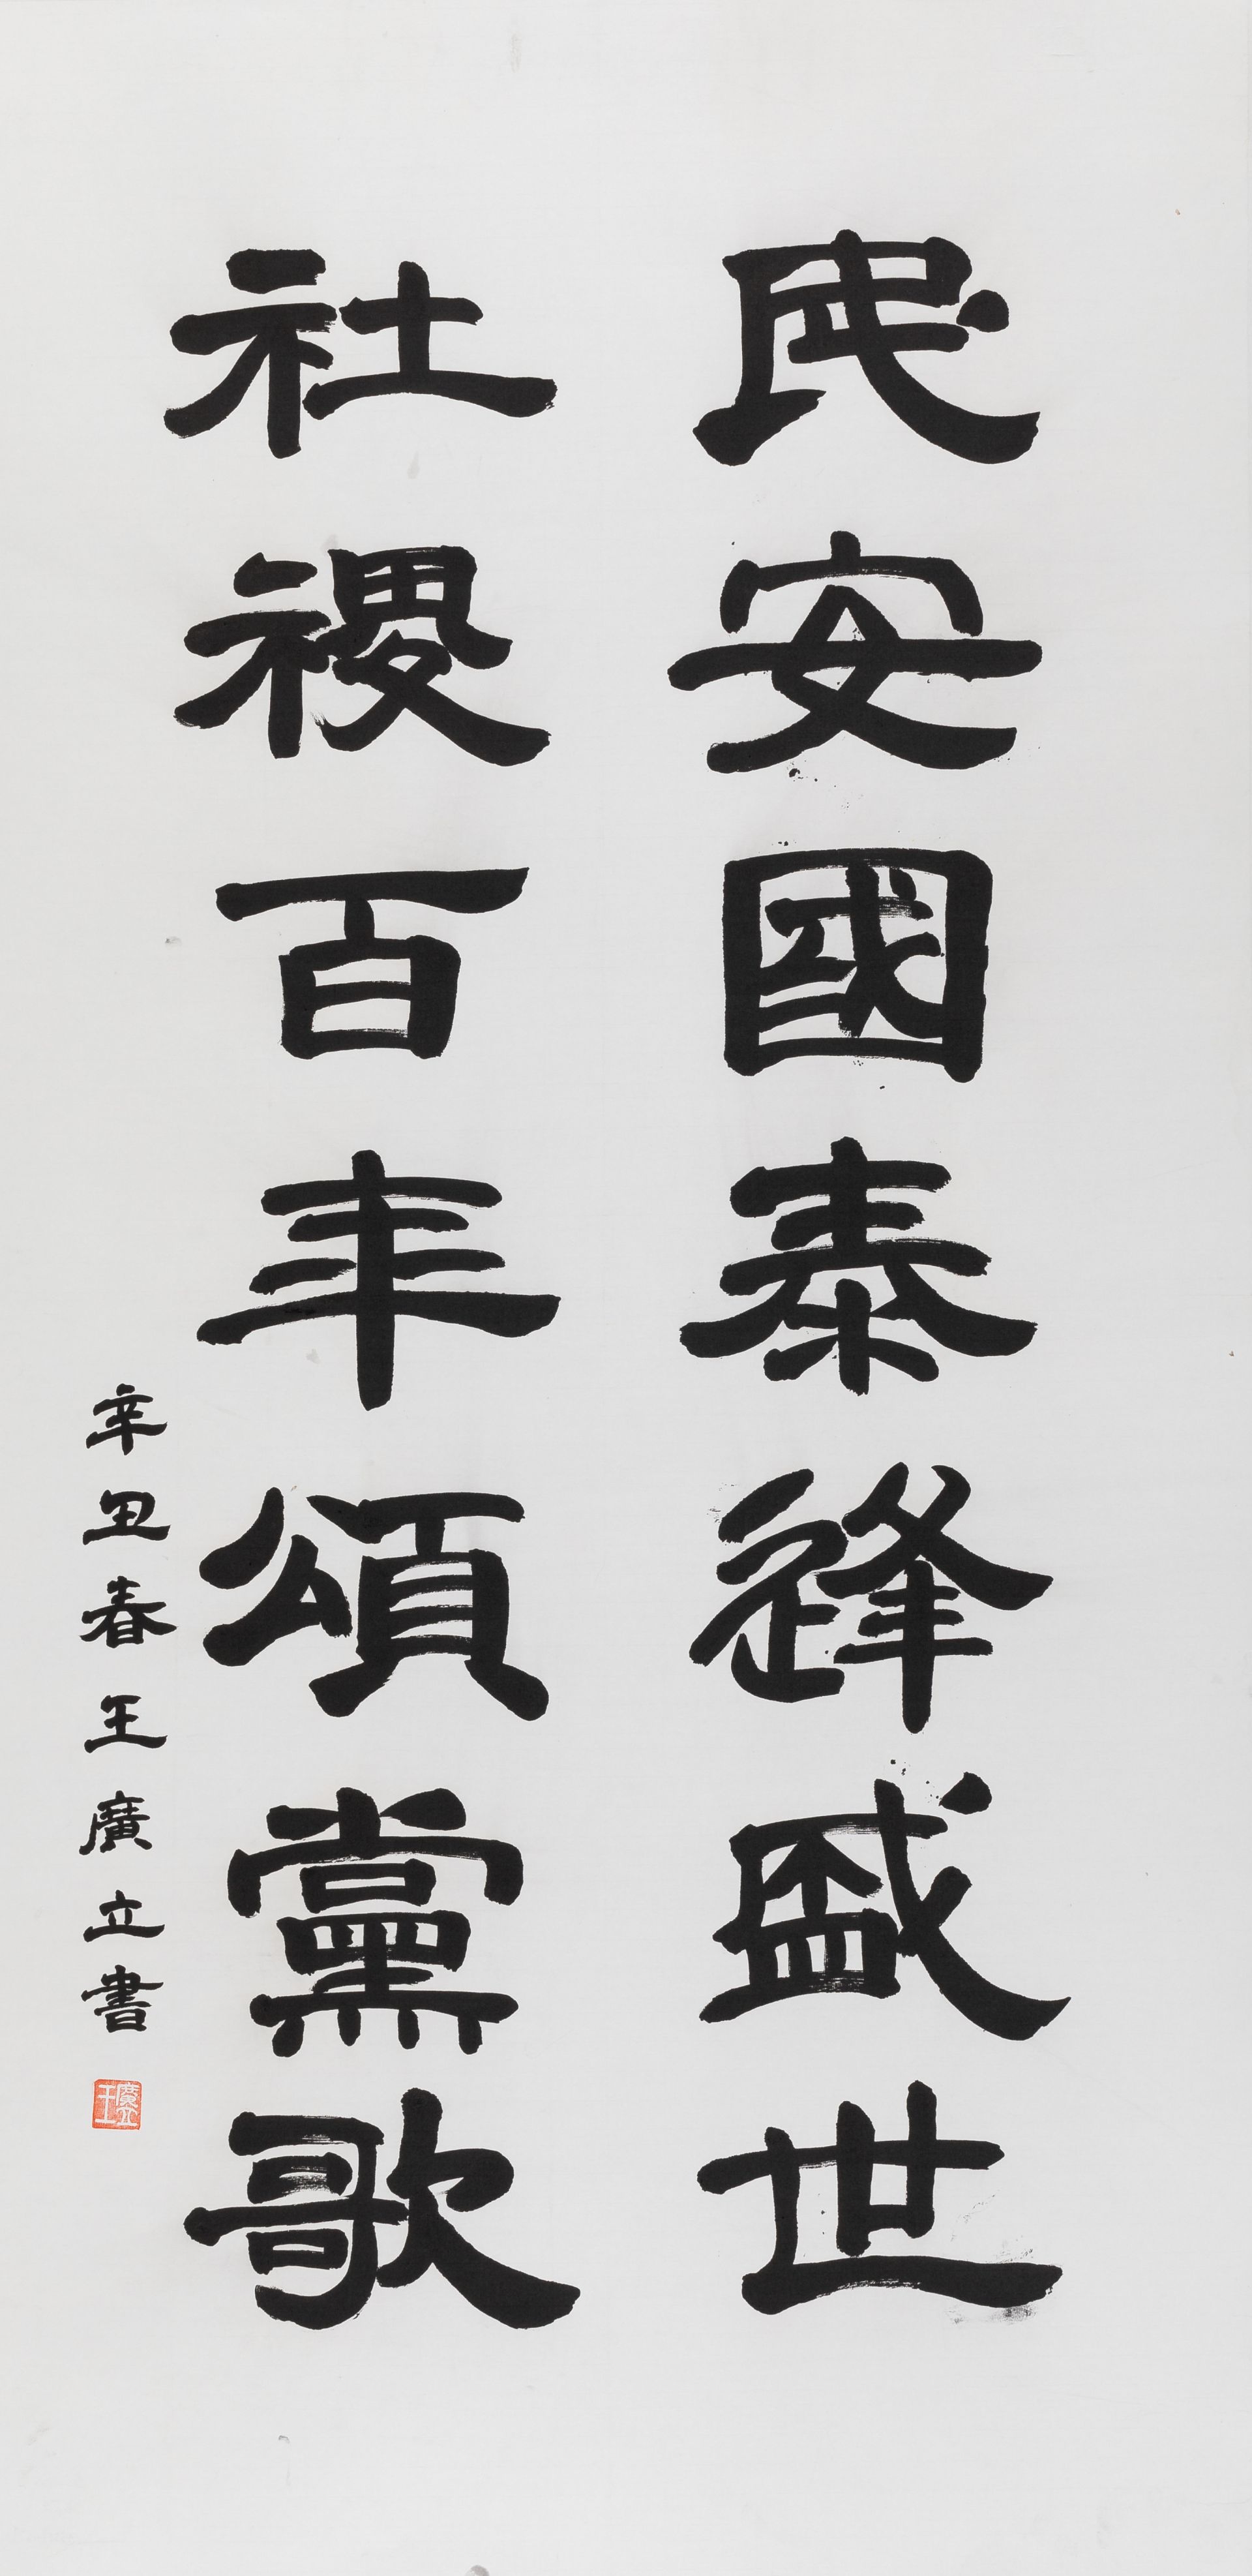 民安國泰逢盛世
社稷百年頌黨歌
辛丑春王廣立書
王廣立